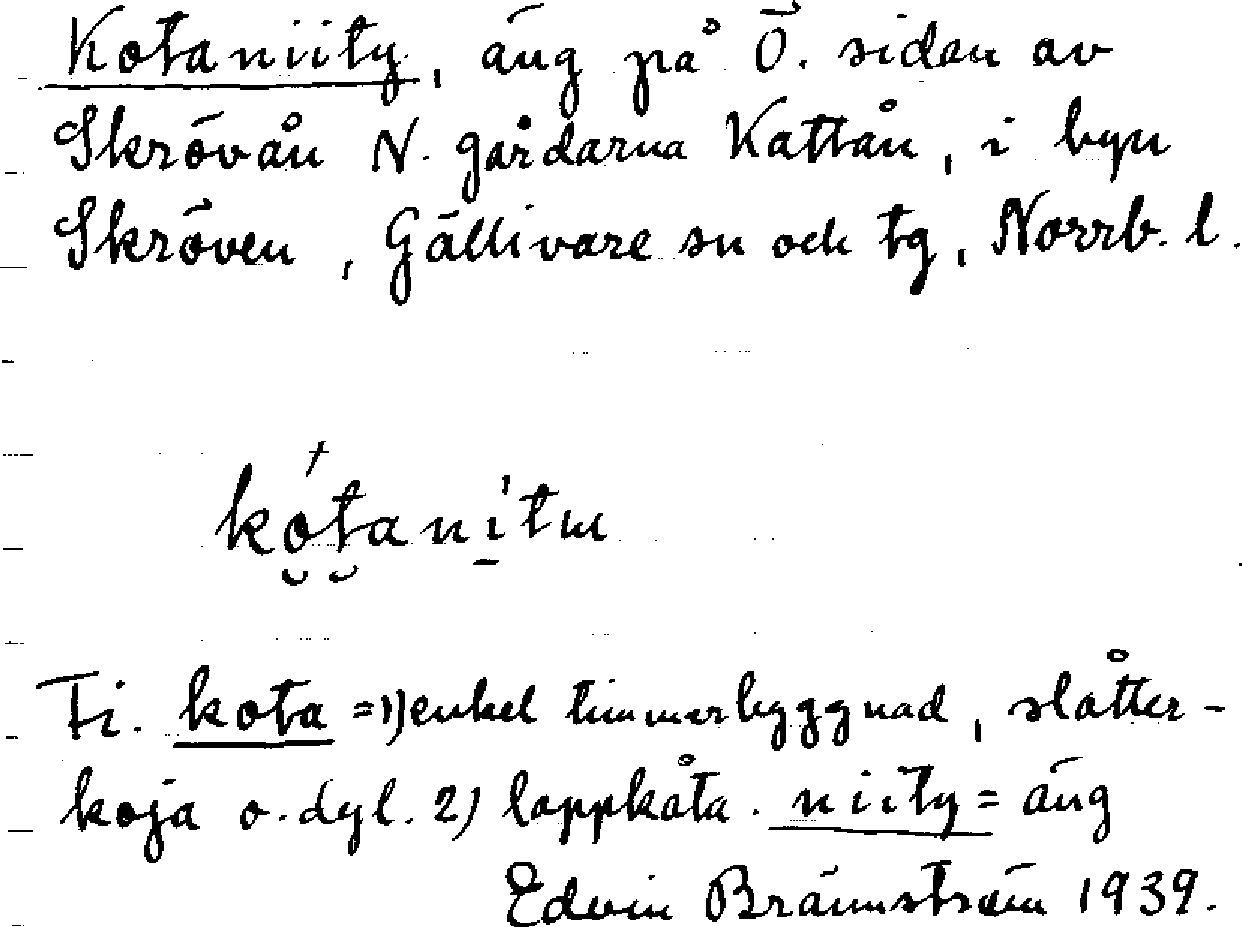 Kotaniity, äng på Ö. sidan av
Skrövån N. gårdarna Kattån, i byn
Skröven, Gällivare sn och tg, Norrb. l.
Fi. kota = 1) enkel timmerbyggnad, slåtter-
koja o. dyl. 2) lappkåta. niity = äng
Edvin Brännström 1939.